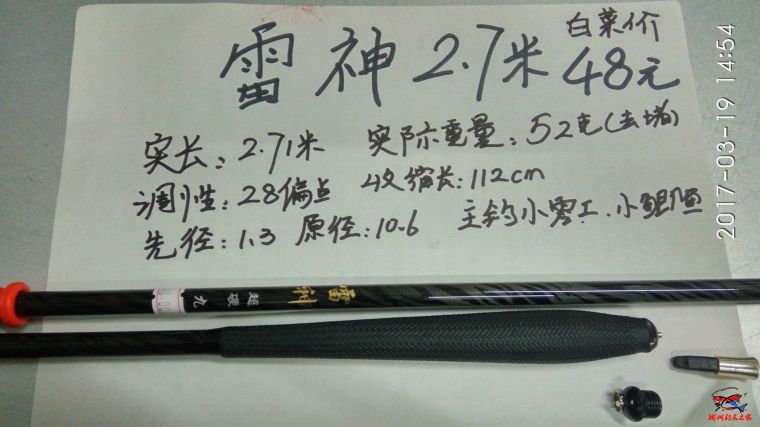 白菜价
雷神 2.7米 48元
实长:2.71米 实际重量:52克(去堵)
调性:28偏点 收缩长:112cm
先径:1.3 原径:10.6 主钓小零工.小鲫鱼
雷神
超硬
九
2017-03-19 14:54